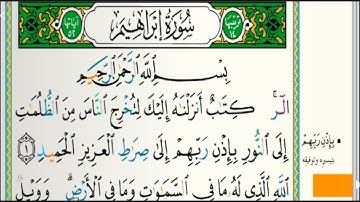 ترتيبها ١٤
سُورَةُ إِبْرَاهِيمَ
آياتها ٥٢
بِسْمِ ٱللَّهِ ٱلرَّحْمَٰنِ ٱلرَّحِيمِ
الٓر ۚ كِتَٰبٌ أَنزَلْنَٰهُ إِلَيْكَ لِتُخْرِجَ ٱلنَّاسَ مِنَ ٱلظُّلُمَٰتِ
إِلَى ٱلنُّورِ بِإِذْنِ رَبِّهِمْ إِلَىٰ صِرَٰطِ ٱلْعَزِيزِ ٱلْحَمِيدِ ١
ٱللَّهِ ٱلَّذِى لَهُۥ مَا فِى ٱلسَّمَٰوَٰتِ وَمَا فِى ٱلْأَرْضِ ۗ وَوَيْلٌ
▪ بِإِذْنِ رَبِّهِمْ
بتيسيره وتوفيقه